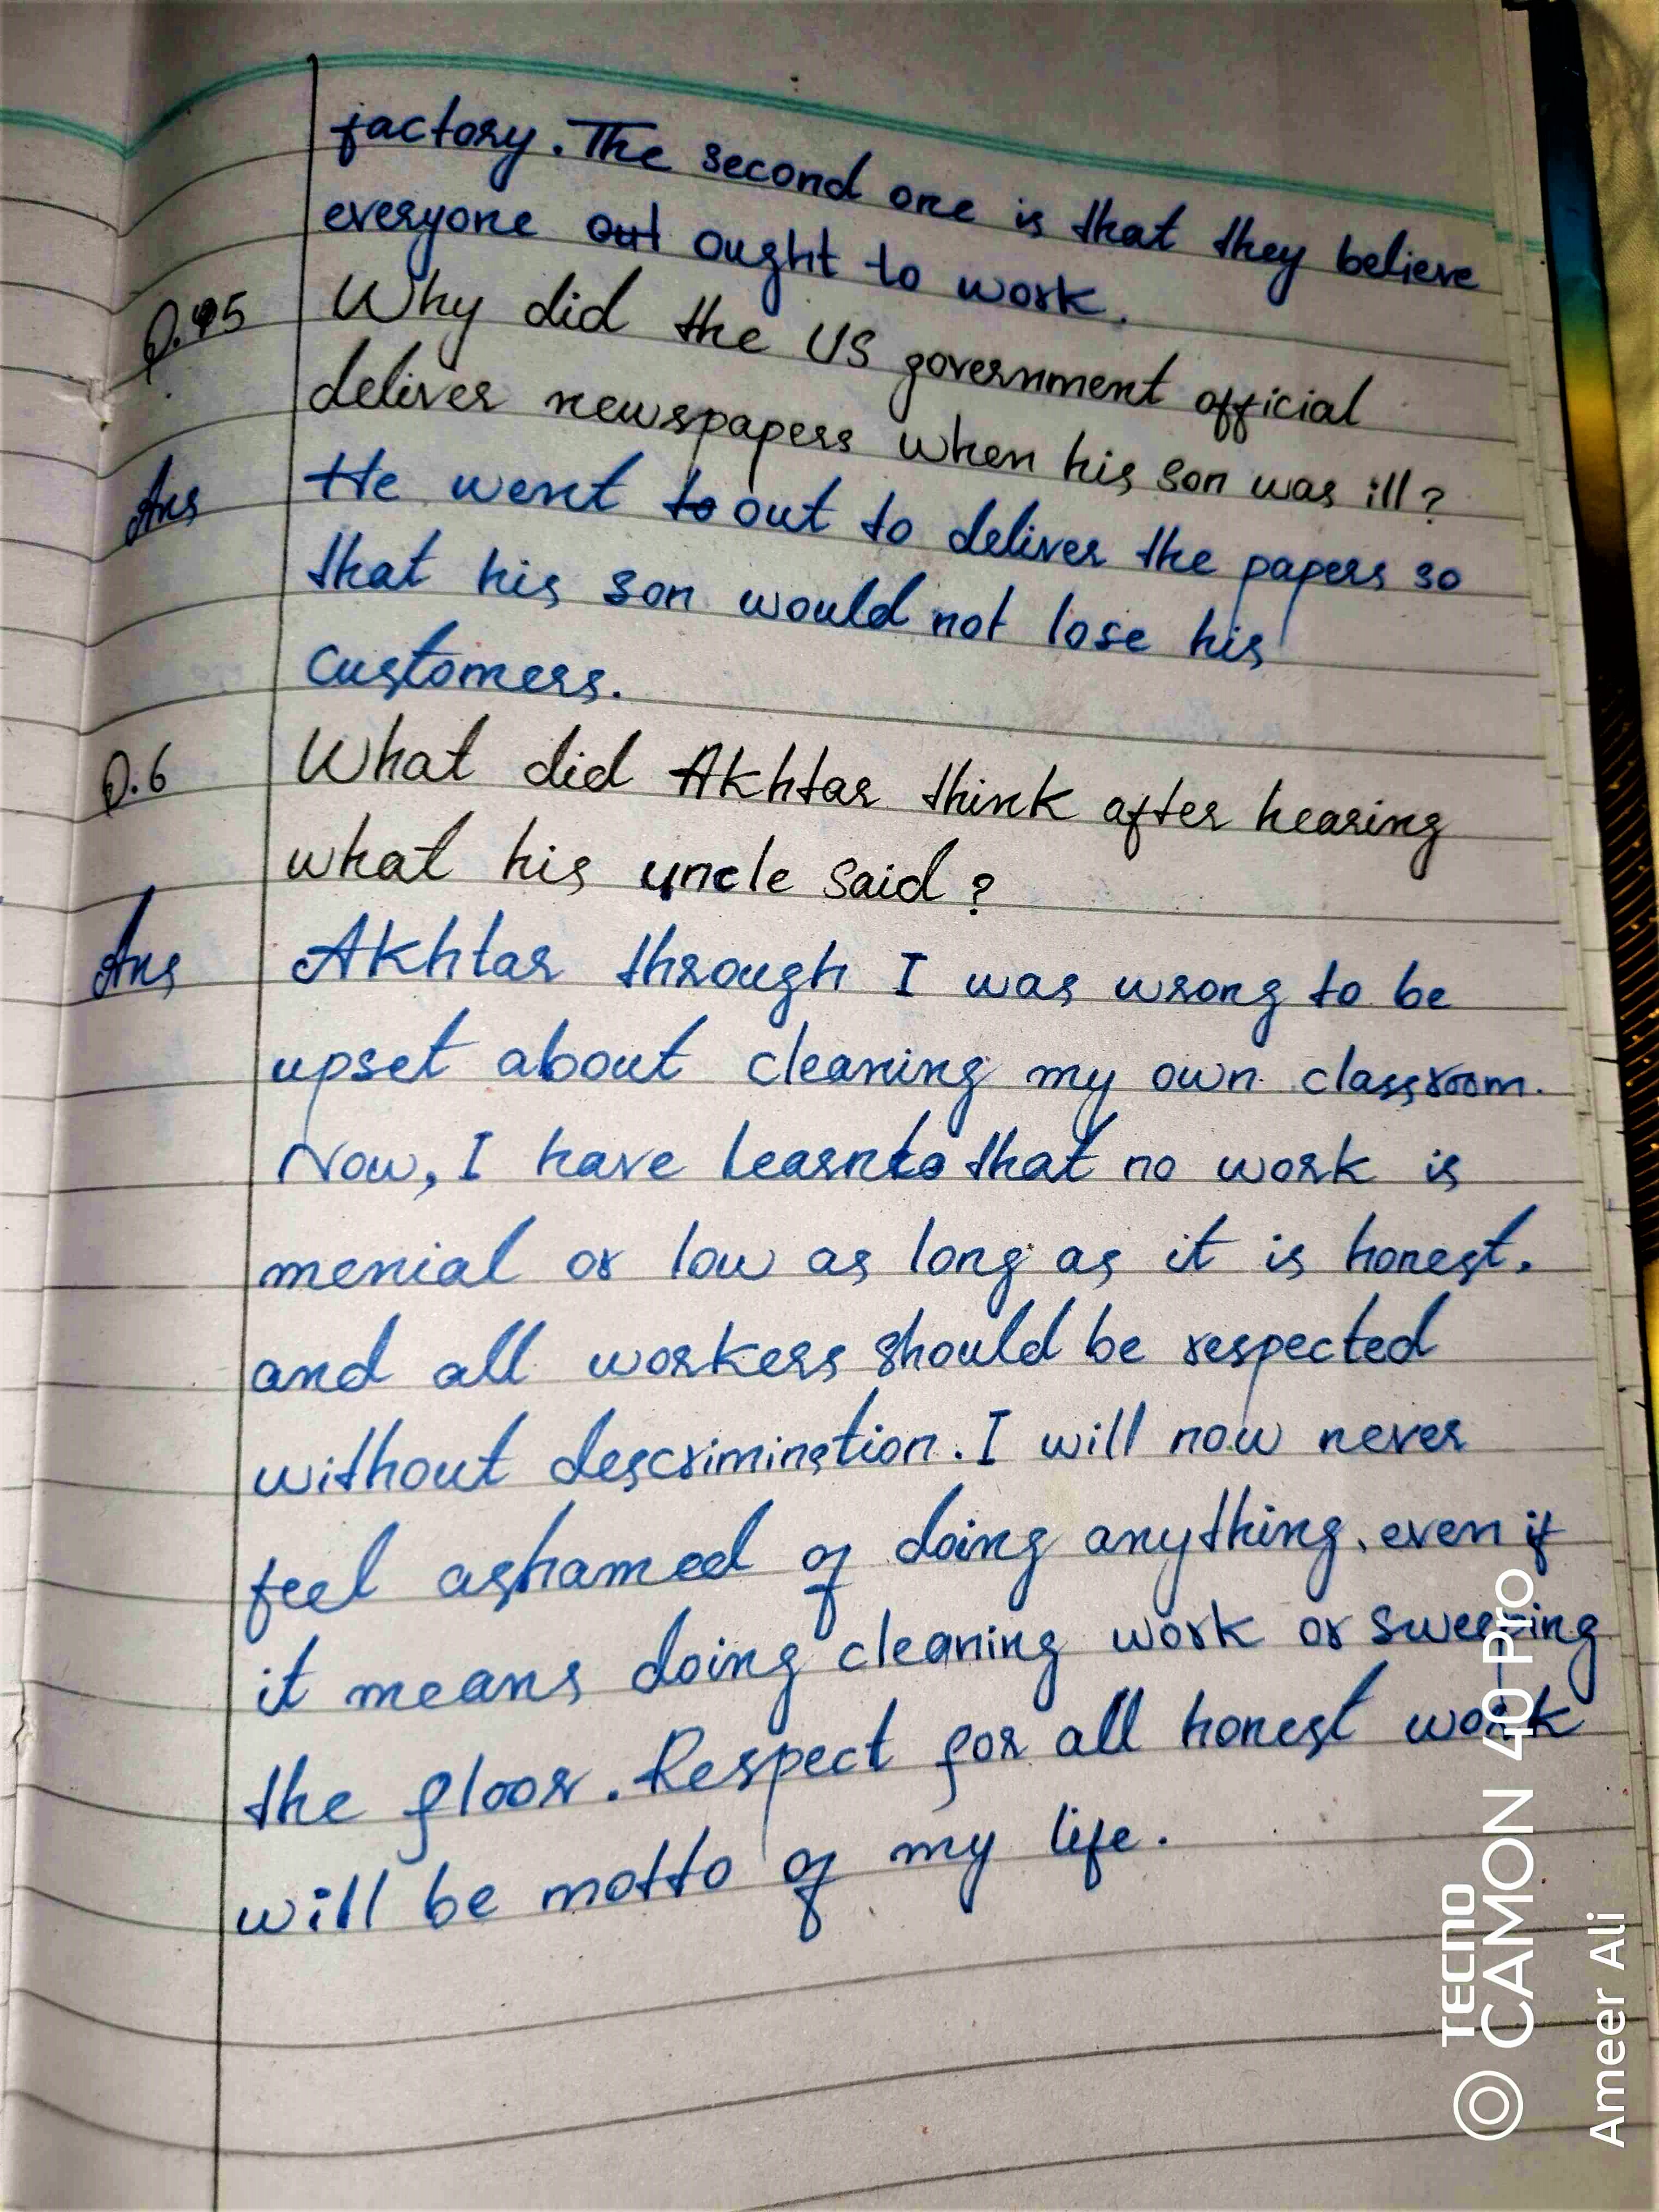 factory. The second one is that they believe
everyone out ought to work.
Q.5 Why did the US government official
deliver newspapers when his son was ill?
Ans He went to out to deliver the papers so
that his son would not lose his
customers.
Q.6 What did Akhtar think after hearing
what his uncle said?
Ans Akhtar through I was wrong to be
upset about cleaning my own classroom.
Now, I have learnto that no work is
menial or low as long as it is honest.
and all workers should be respected
without descrimination. I will now never
feel ashamed of doing anything, even if
it means doing cleaning work or sweeping
the floor. Respect for all honest work
will be motto of my life.
TECNO
CAMON 40 Pro
Ameer Ali